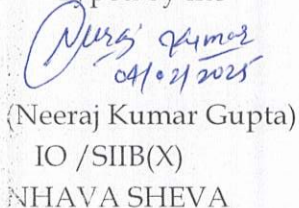 Neeraj Kumar
04/02/2025
(Neeraj Kumar Gupta)
IO /SIIB(X)
NHAVA SHEVA